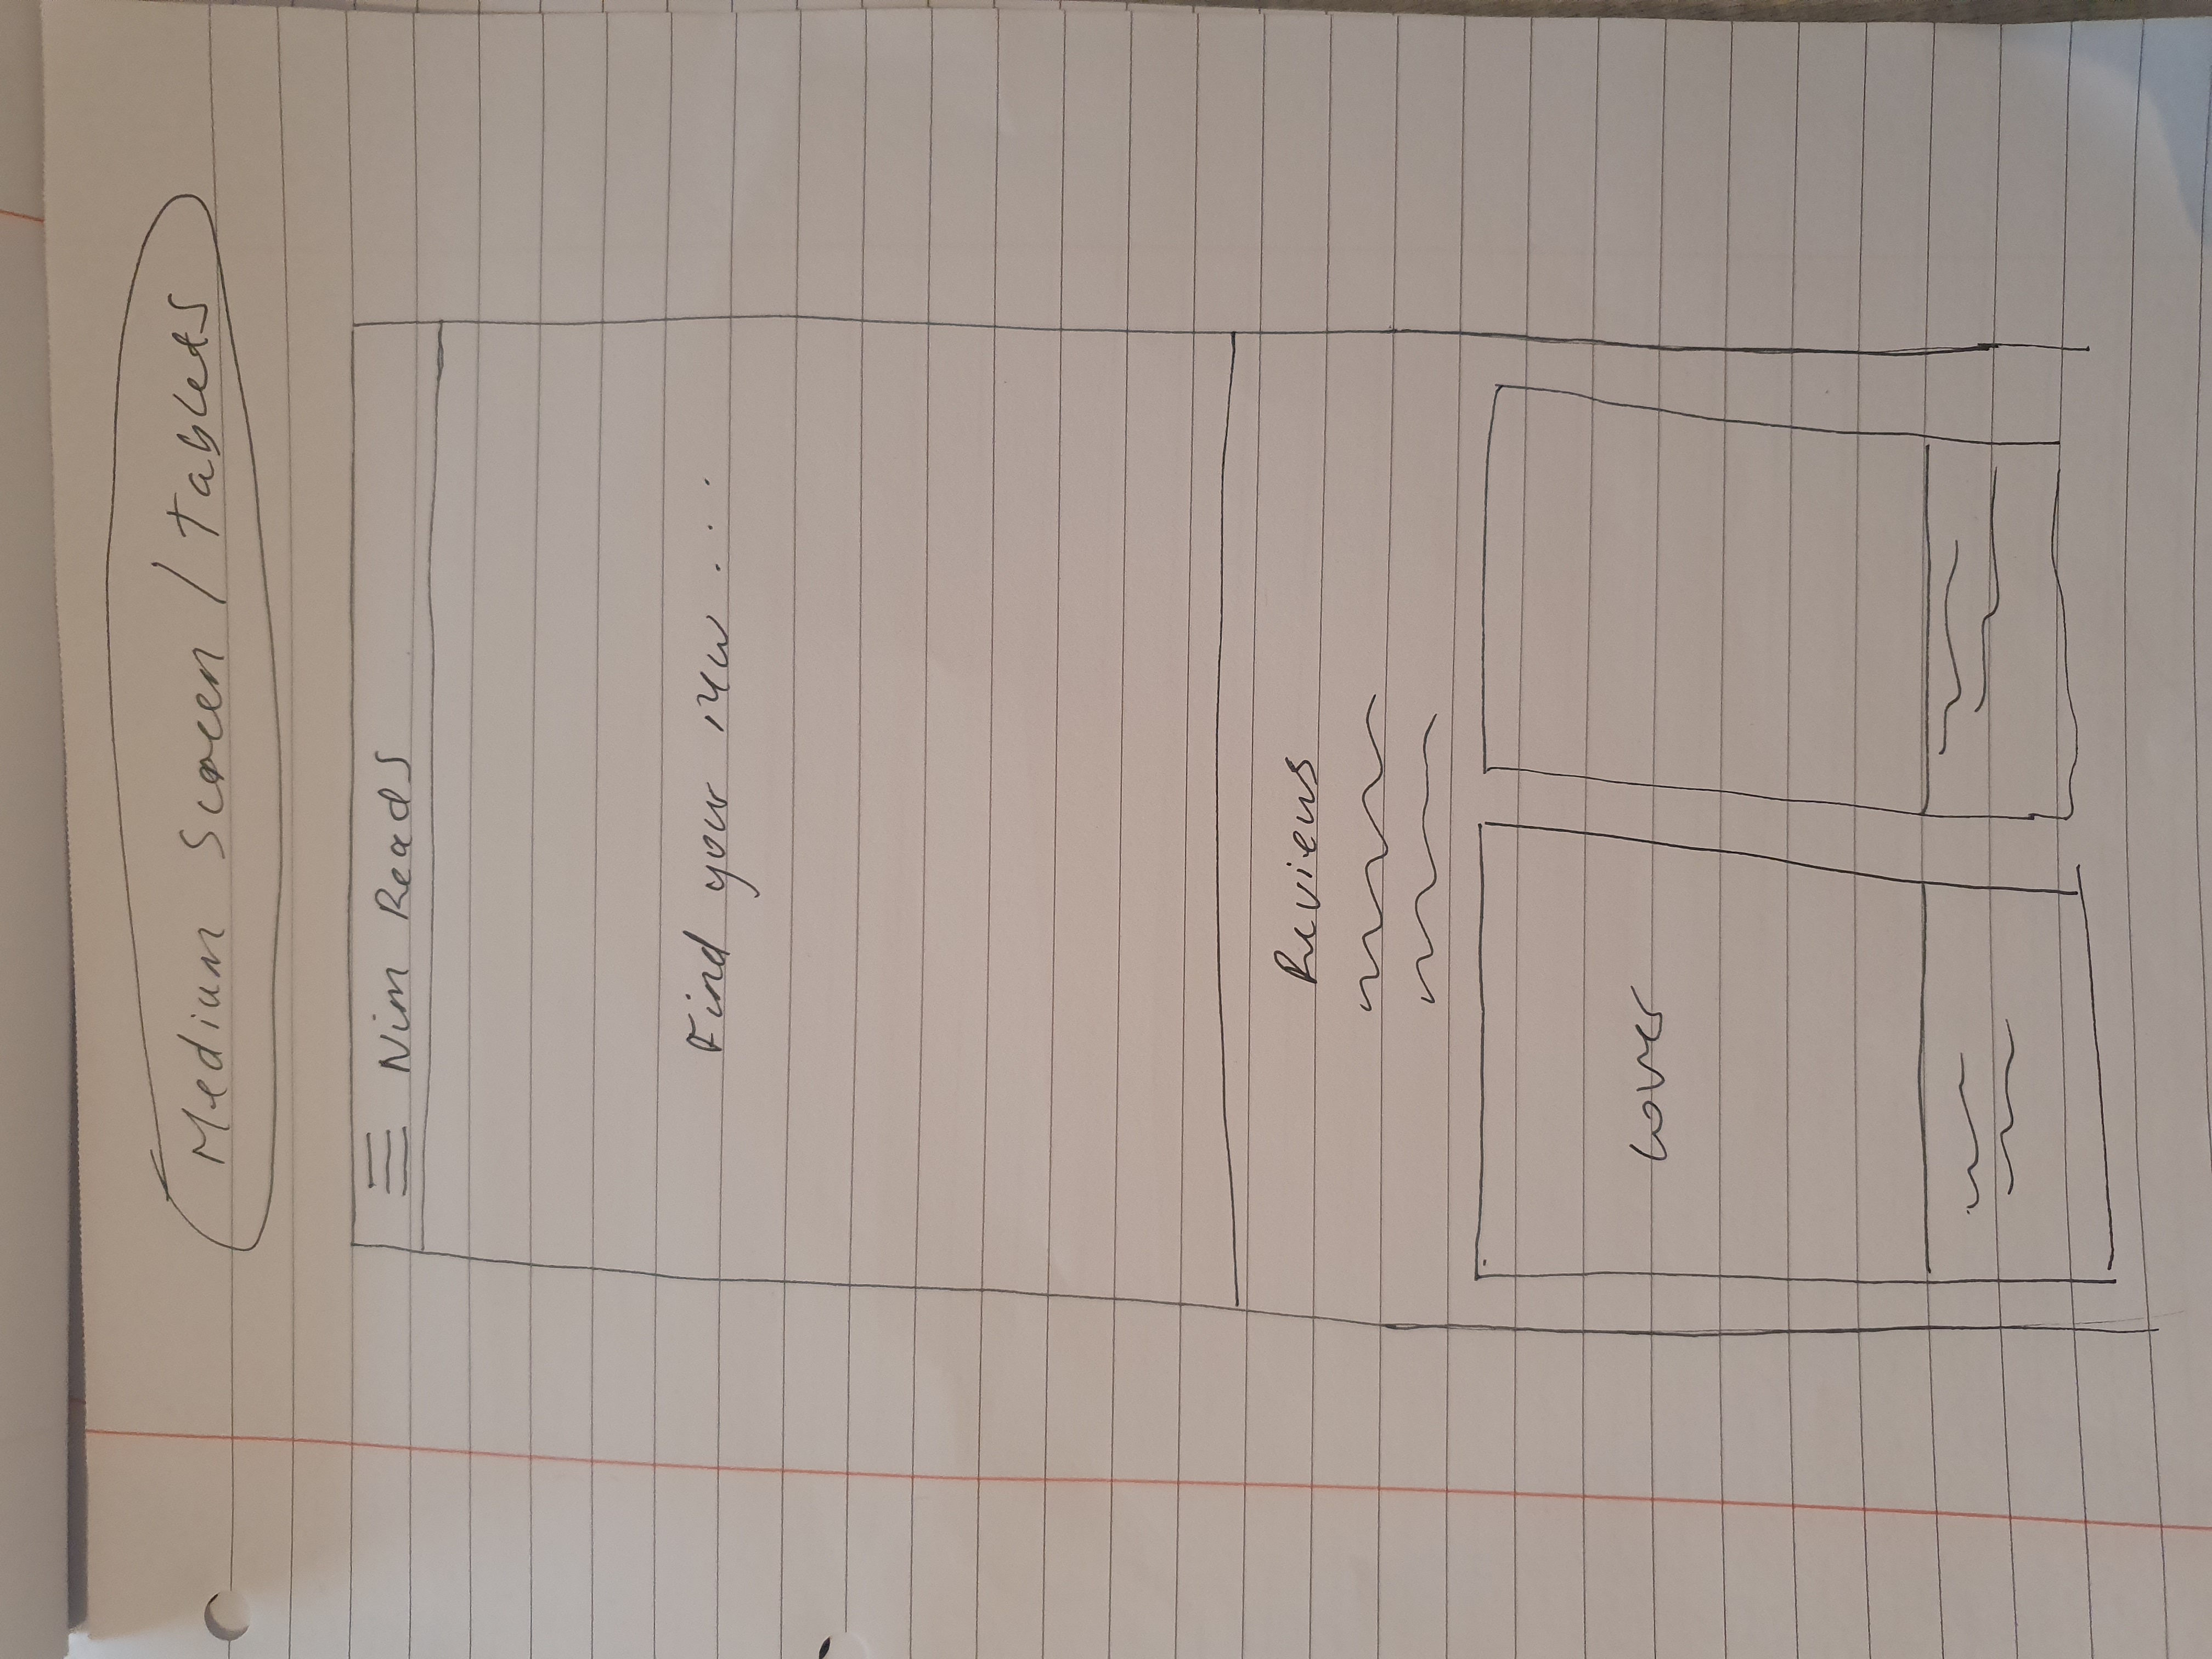 Medium Screen / Tablets
Nim Reads
Find your new ...
Reviews
Cover